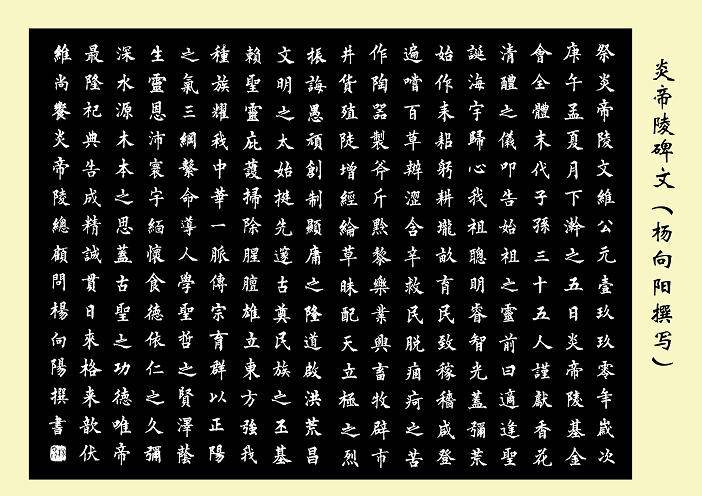 炎帝陵碑文（杨向阳撰写）
祭炎帝陵文維公元壹玖玖零年歲次
庚午孟夏月下澣之五日炎帝陵基金
會全體末代子孫三十五人謹獻香花
清醴之儀叩告始祖之靈前曰適逢聖
誕海宇歸心我祖聰明睿智光蓋彌荒
始作耒耜躬耕壠畝育民致稼穡咸登
遍嚐百草辨澀含辛救民脱痼疴之苦
作陶器製斧斤黙黎樂業興畜牧辟市
井貨殖陡增經綸草昧配天立極之烈
振誨愚頑創制顯庸之隆道啟洪荒昌
文明之太始挺先邃古奠民族之丕基
賴聖靈庇護掃除腥膻雄立東方強我
種族耀我中華一脈傳宗育群以正陽
之氣三綱繫命導人學聖哲之賢澤蔭
生靈恩沛寰宇緬懷食德依仁之久彌
深水源木本之思蓋古聖之功德唯帝
最隆祀典告成精誠貫日來格來歆伏
維尚饗炎帝陵總顧問楊向陽撰書